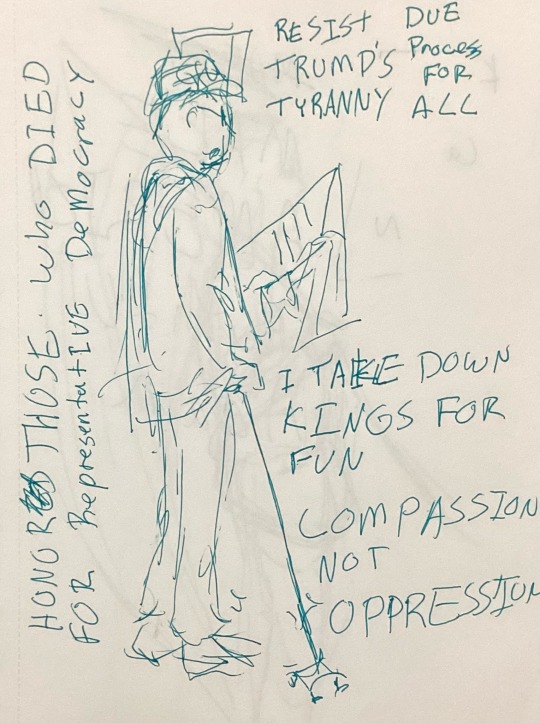 RESIST DUE
TRUMP'S Process
TYRANNY FOR
ALL
HONOR THOSE WHO DIED
FOR Representative Democracy
I TAKE DOWN
KINGS FOR
FUN
COMPASSION
NOT
OPPRESSION